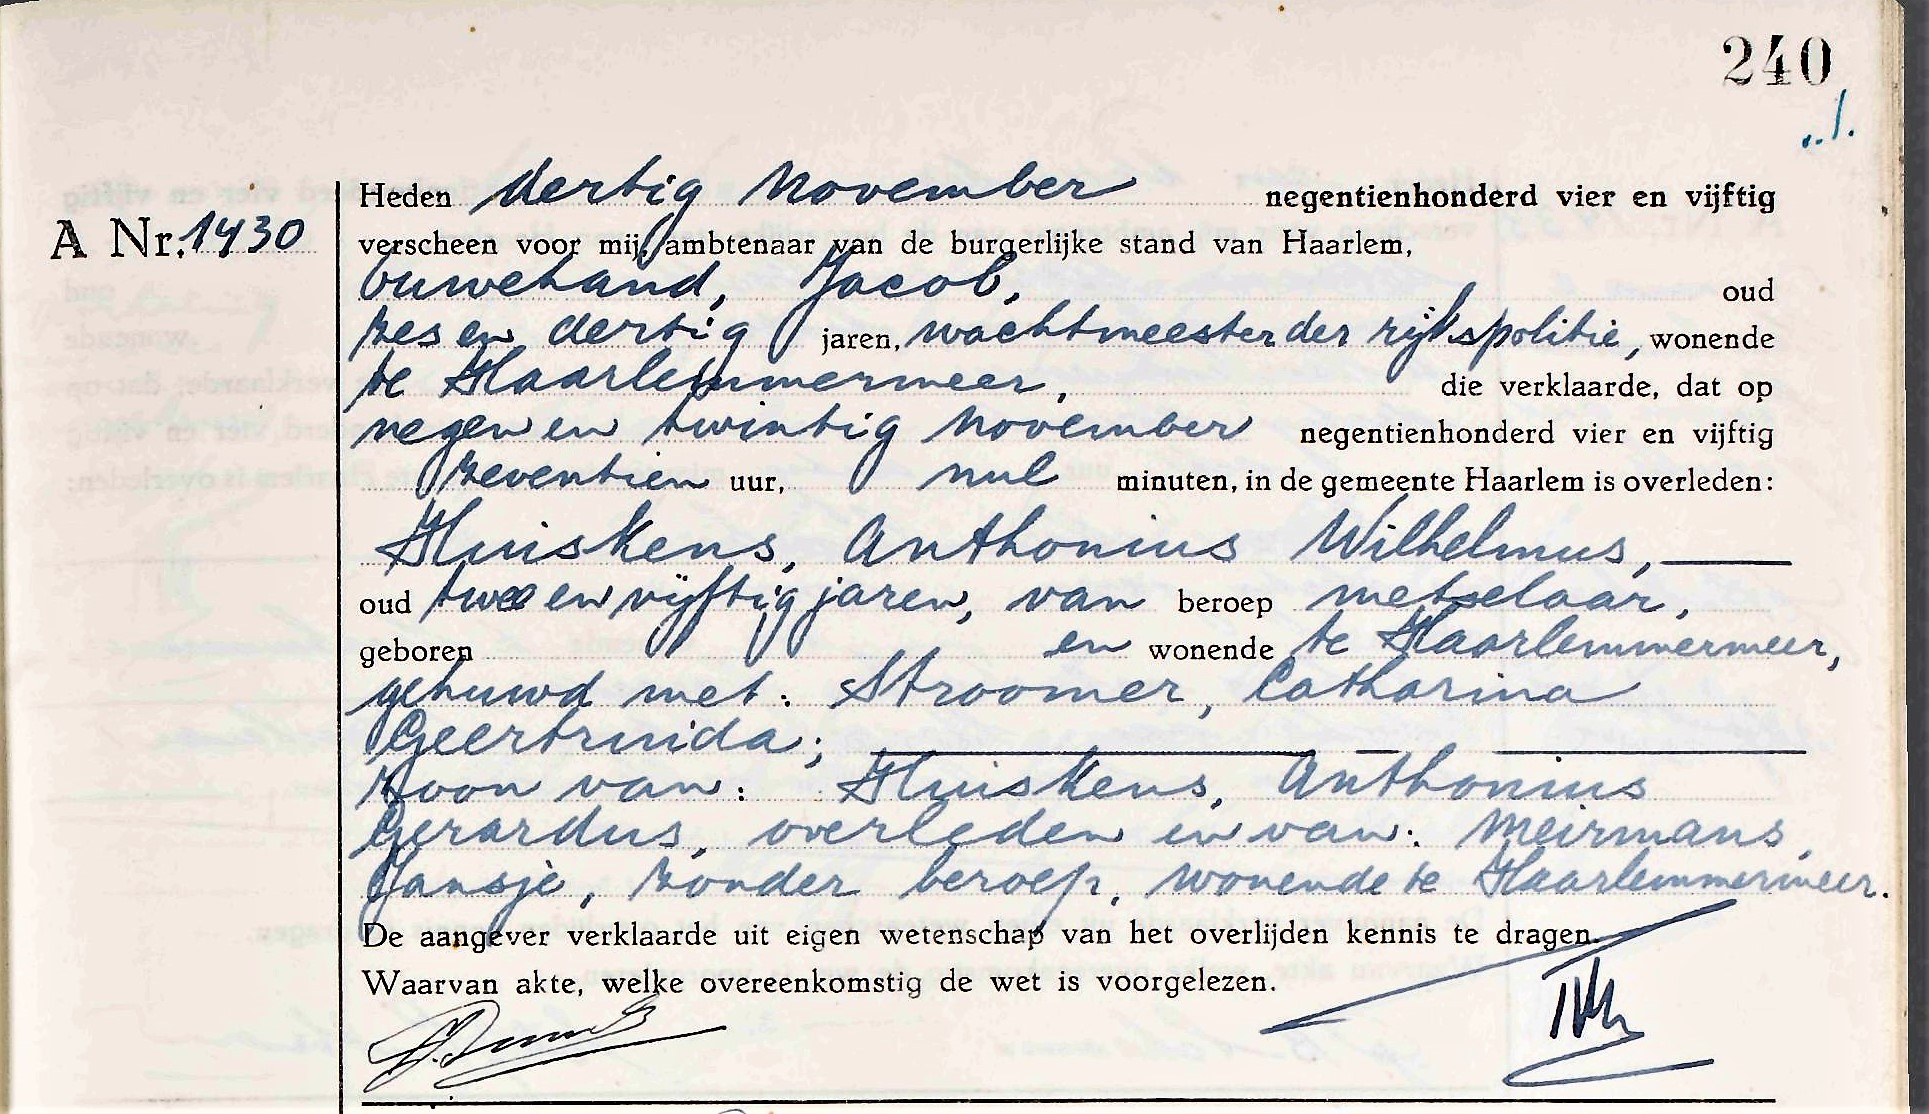 240
Heden dertig November negentienhonderd vier en vijftig
A Nr. 1430
verscheen voor mij, ambtenaar van de burgerlijke stand van Haarlem,
Ouwehand, Jacob, oud
zes en dertig jaren, wachtmeester der rijkspolitie, wonende
te Haarlemmermeer, die verklaarde, dat op
negen en twintig November negentienhonderd vier en vijftig
zeventien uur, nul minuten, in de gemeente Haarlem is overleden:
Huiskens, Anthonius Wilhelmus,
oud twee en vijftig jaren, van beroep metselaar,
geboren en wonende te Haarlemmermeer,
gehuwd met: Stroomer, Catharina
Geertruida;
zoon van: Huiskens, Anthonius
Gerardus, overleden en van: Meirmans,
Jansje, zonder beroep, wonende te Haarlemmermeer.
De aangever verklaarde uit eigen wetenschap van het overlijden kennis te dragen.
Waarvan akte, welke overeenkomstig de wet is voorgelezen.